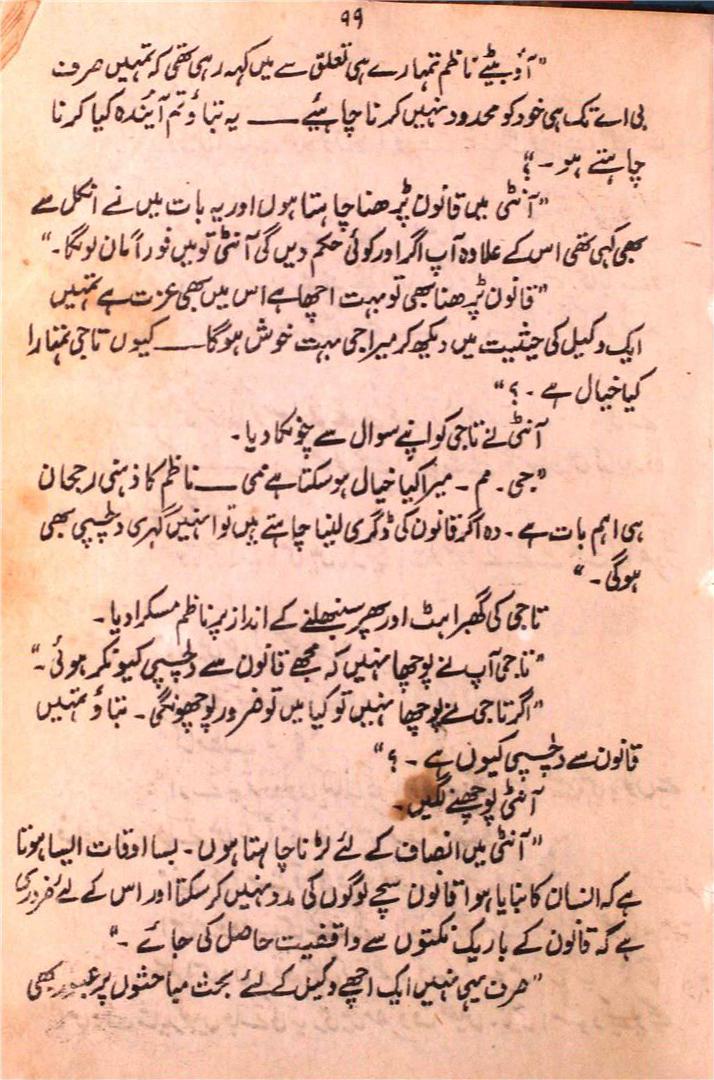 ۹۹
"آؤ بیٹے ناظم تمہارے ہی تعلق سے میں کہہ رہی تھی کہ تمہیں صرف
بی اے تک ہی خود کو محدود نہیں کرنا چاہئیے ـــــ یہ بتاؤ تم آیندہ کیا کرنا
چاہتے ہو ۔ ؟"
"آنٹی میں قانون پڑھنا چاہتا ہوں اور یہ بات میں نے انکل سے
بھی کہی تھی اس کے علاوہ آپ اگر اور کوئی حکم دیں گی آنٹی تو میں فوراً مان لونگا۔"
"قانون پڑھنا بھی تو بہت اچھا ہے اس میں بھی عزت ہے تمہیں
ایک وکیل کی حیثیت میں دیکھ کر میرا جی بہت خوش ہوگا ـــــ کیوں تاجی تمہارا
کیا خیال ہے ۔ ؟"
آنٹی نے تاجی کو اپنے سوال سے چونکا دیا۔
"جی ۔ مم ۔ میرا کیا خیال ہو سکتا ہے ممی ـــــ ناظم کا ذہنی رجحان
ہی اہم بات ہے ۔ وہ اگر قانون کی ڈگری لینا چاہتے ہیں تو انہیں گہری دلچسپی بھی
ہوگی ۔"
تاجی کی گھبراہٹ اور پھر سنبھلنے کے انداز پر ناظم مسکرا دیا۔
"تاجی آپ نے پوچھا نہیں کہ مجھے قانون سے دلچسپی کیونکر ہوئی ۔"
"اگر تاجی نے پوچھا نہیں تو کیا میں تو ضرور پوچھونگی ۔ بتاؤ تمہیں
قانون سے دلچسپی کیوں ہے ۔ ؟"
آنٹی پوچھنے لگیں۔
"آنٹی میں انصاف کے لئے لڑنا چاہتا ہوں ۔ بسا اوقات ایسا ہوتا
ہے کہ انسان کا بنایا ہوا قانون سچے لوگوں کی مدد نہیں کر سکتا اور اس کے لئے ضروری
ہے کہ قانون کے باریک نکتوں سے واقفیت حاصل کی جائے ۔"
"صرف یہی نہیں ایک اچھے وکیل کے لئے بحث مباحثوں پر عبور بھی